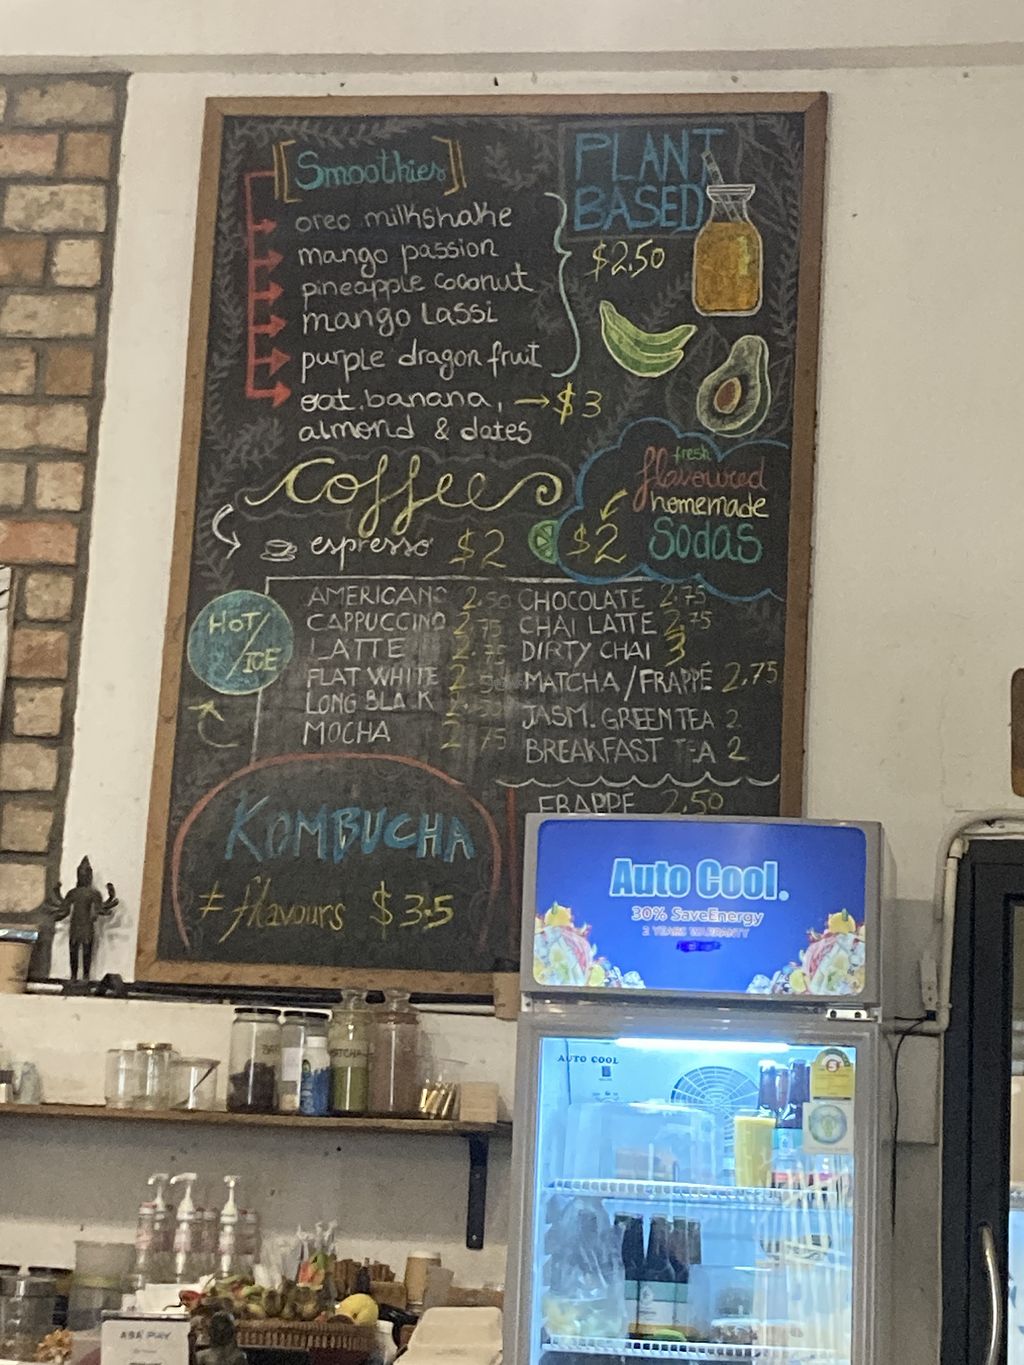 [Smoothies]
oreo milkshake
mango passion
pineapple coconut
mango lassi
purple dragon fruit
oat, banana, → $3
almond & dates
PLANT
BASED
$2.50
Coffee
espresso $2
fresh
flavoured
homemade
$2 Sodas
HOT/
ICE
AMERICANO 2.50
CAPPUCCINO 2.75
LATTE 2.75
FLAT WHITE 2.50
LONG BLACK
MOCHA 2.75
CHOCOLATE 2.75
CHAI LATTE 2.75
DIRTY CHAI 3
MATCHA/FRAPPÉ 2.75
JASM. GREEN TEA 2
BREAKFAST TEA 2
FRAPPE 2.50
KOMBUCHA
≠ flavours $3.5
Auto Cool.
30% SaveEnergy
2 YEARS WARRANTY
AUTO COOL
5
MATCHA
ABA PAY